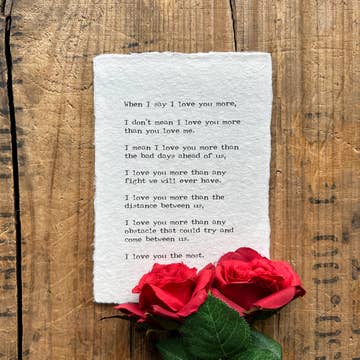 When I say I love you more,
I don't mean I love you more
than you love me.
I mean I love you more than
the bad days ahead of us,
I love you more than any
fight we will ever have.
I love you more than the
distance between us,
I love you more than any
obstacle that could try and
come between us.
I love you the most.